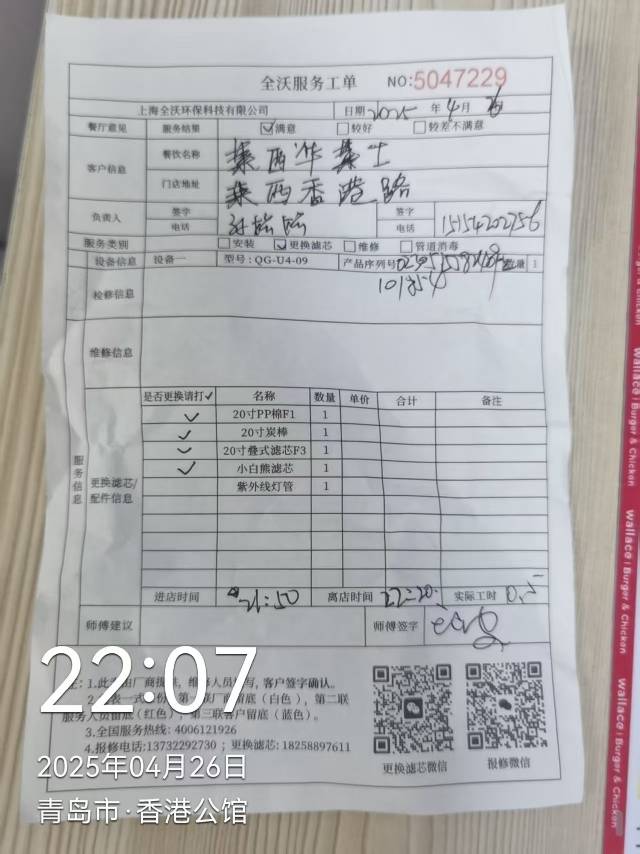 全沃服务工单 NO:5047229
上海全沃环保科技有限公司 日期 2025 年 4 月 26
餐厅意见 服务结果 ☑满意 □较好 □较差不满意
客户信息 餐饮名称 莱西华莱士
门店地址 莱西香港路
负责人 签字 签字
电话 电话 15154202756
服务类别 □安装 ☑更换滤芯 □维修 □管道消毒
设备信息 设备一 型号:QG-U4-09 产品序列号 数量 1
检修信息
维修信息
服务信息
更换滤芯/配件信息
是否更换请打✓ 名称 数量 单价 合计 备注
✓ 20寸PP棉F1 1
✓ 20寸炭棒 1
✓ 20寸叠式滤芯F3 1
✓ 小白熊滤芯 1
紫外线灯管 1
进店时间 21:50 离店时间 22:20 实际工时 0.5
师傅建议 师傅签字
注:1.此 厂商提供,维修人员填写,客户签字确认。
表一式 份,第 联厂商留底(白色),第二联
服务人员留底(红色),第三联客户留底(蓝色)。
3.全国服务热线:4006121926
4.报修电话:13732292730;更换滤芯:18258897611
更换滤芯微信 报修微信
22:07
2025年04月26日
青岛市·香港公馆
wallace | Burger & Chicken
wallace | Burger & Chicken
wallace | Burger & Chicken